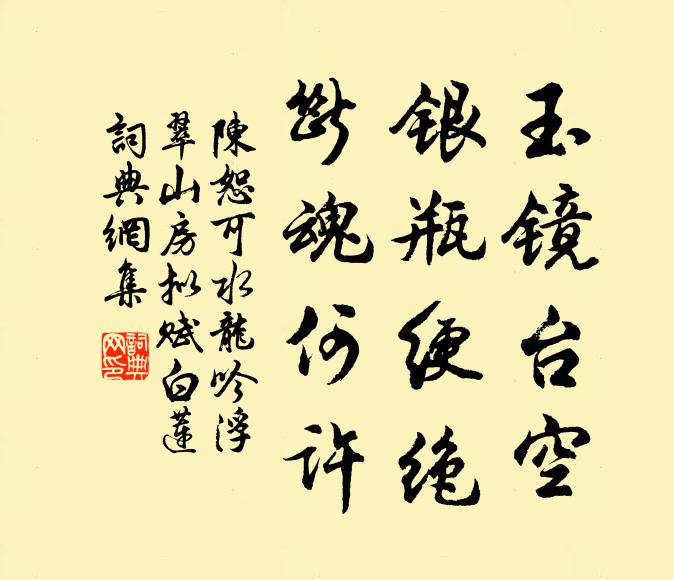 玉镜台空
银瓶绠绝
断魂何许
陳恕可水龍吟浮
翠山房拟赋白蓮
詞典網集
詞典
网印